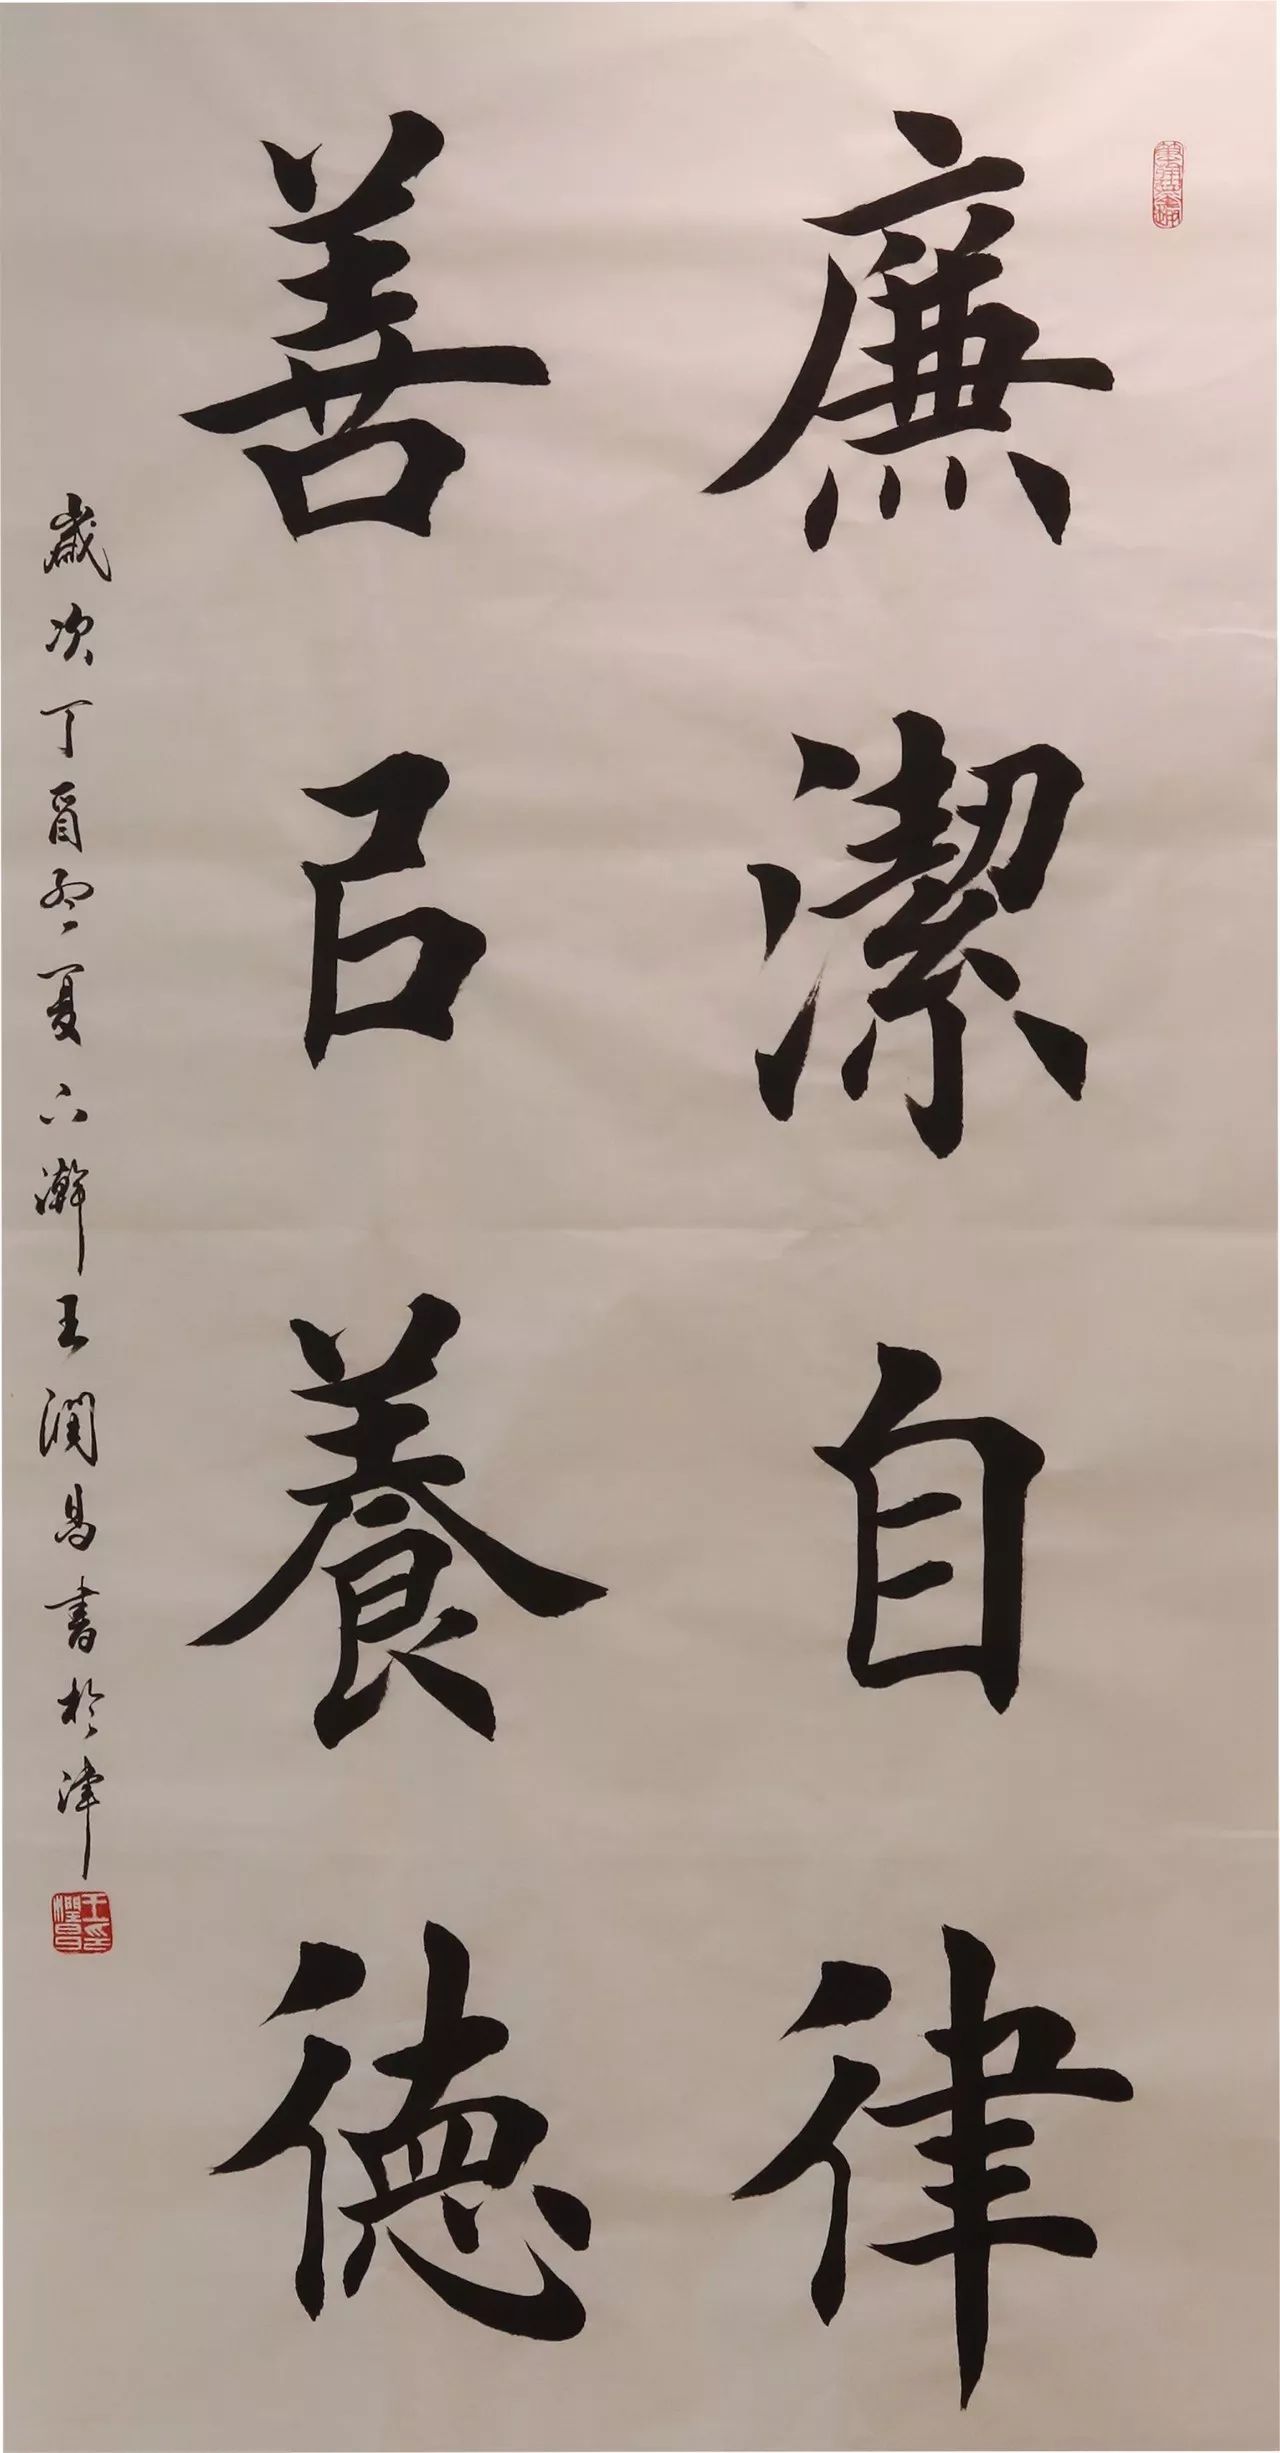 廉潔自律
善㠯養德
歲次丁酉孟夏下澣王潤昌書於津
王潤昌印